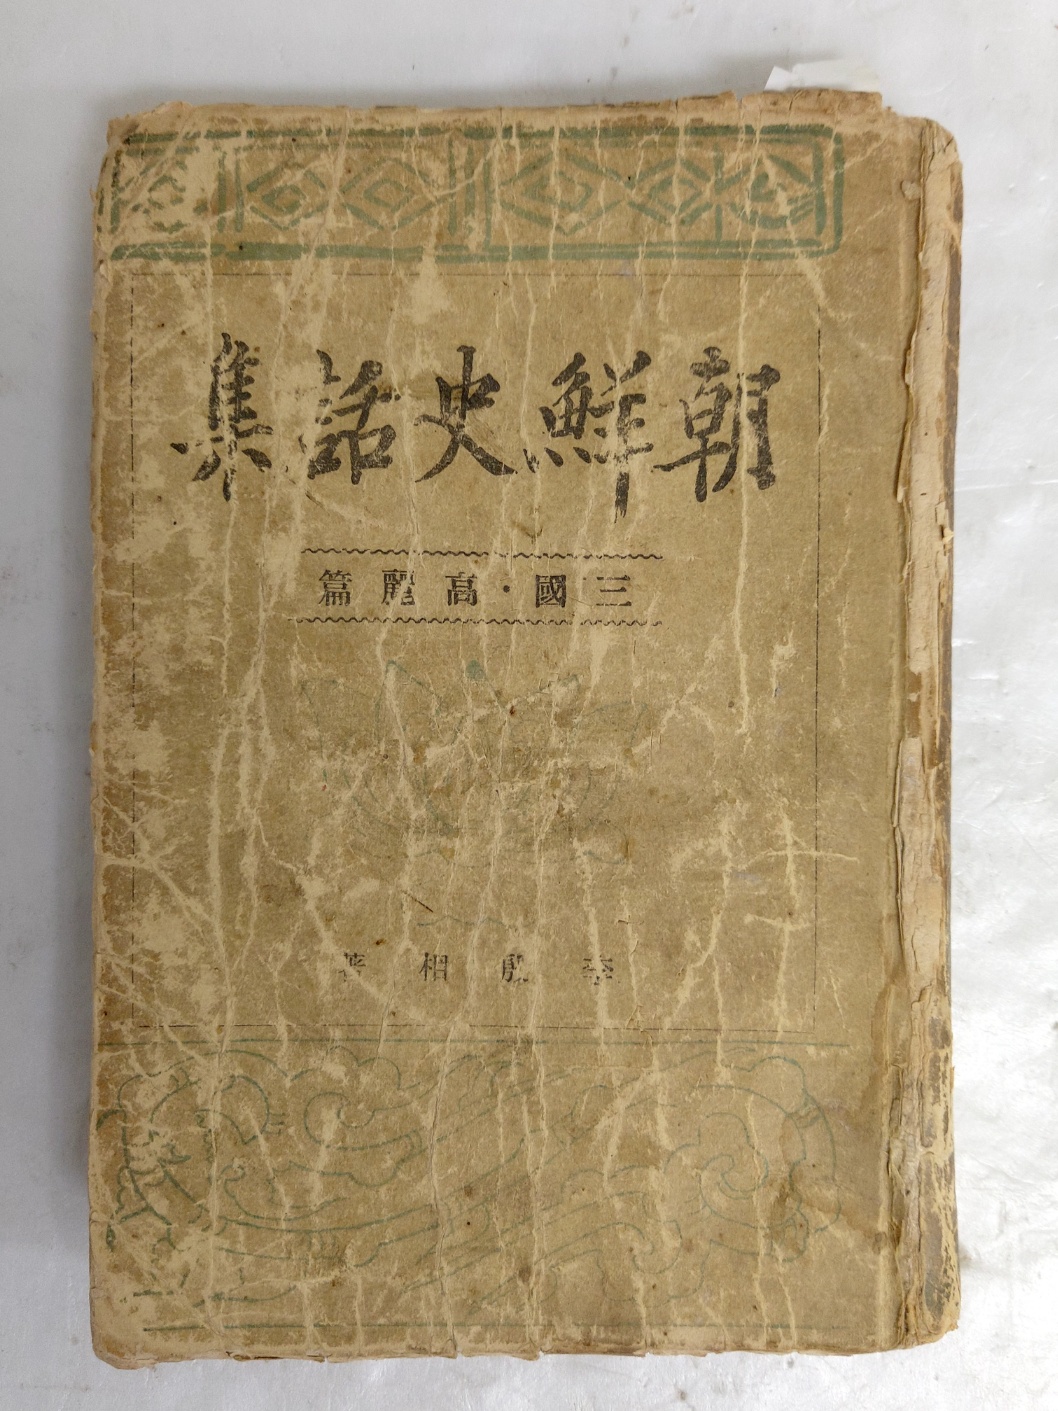 朝鮮史話集
三國·高麗篇
李殷相著